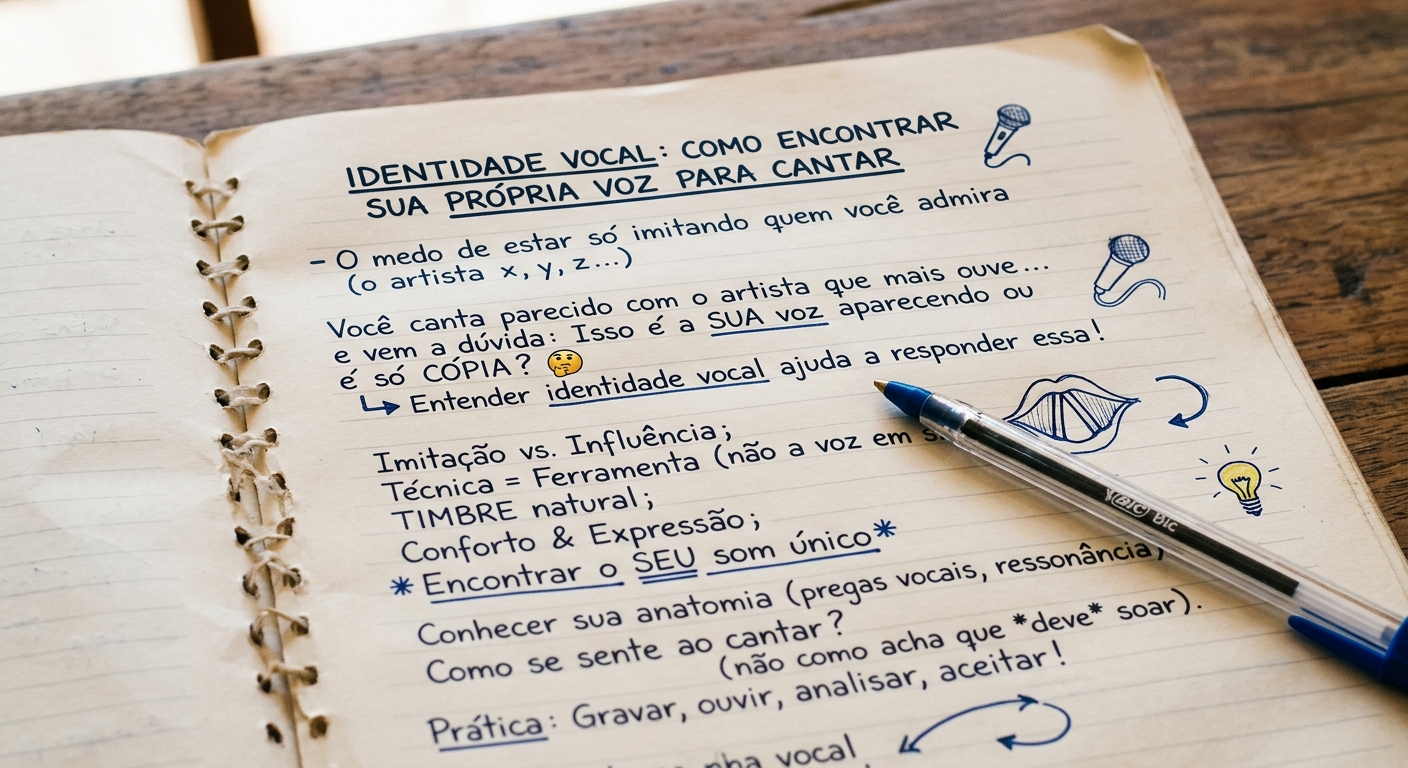 IDENTIDADE VOCAL: COMO ENCONTRAR
SUA PRÓPRIA VOZ PARA CANTAR
- O medo de estar só imitando quem você admira
(o artista x, y, z...)
Você canta parecido com o artista que mais ouve...
e vem a dúvida: Isso é a SUA voz aparecendo ou
é só CÓPIA? 🤔
↳ Entender identidade vocal ajuda a responder essa!
Imitação vs. Influência;
Técnica = Ferramenta (não a voz em
TIMBRE natural;
Conforto & Expressão;
* Encontrar o SEU som único*
Conhecer sua anatomia (pregas vocais, ressonância)
Como se sente ao cantar?
(não como acha que *deve* soar).
Prática: Gravar, ouvir, analisar, aceitar!
vocal
Bic